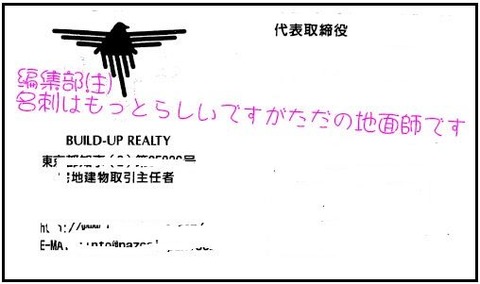 代表取締役
編集部(注)
名刺はもっとらしいですがただの地面師です
BUILD-UP REALTY
地建物取引主任者
E-MA